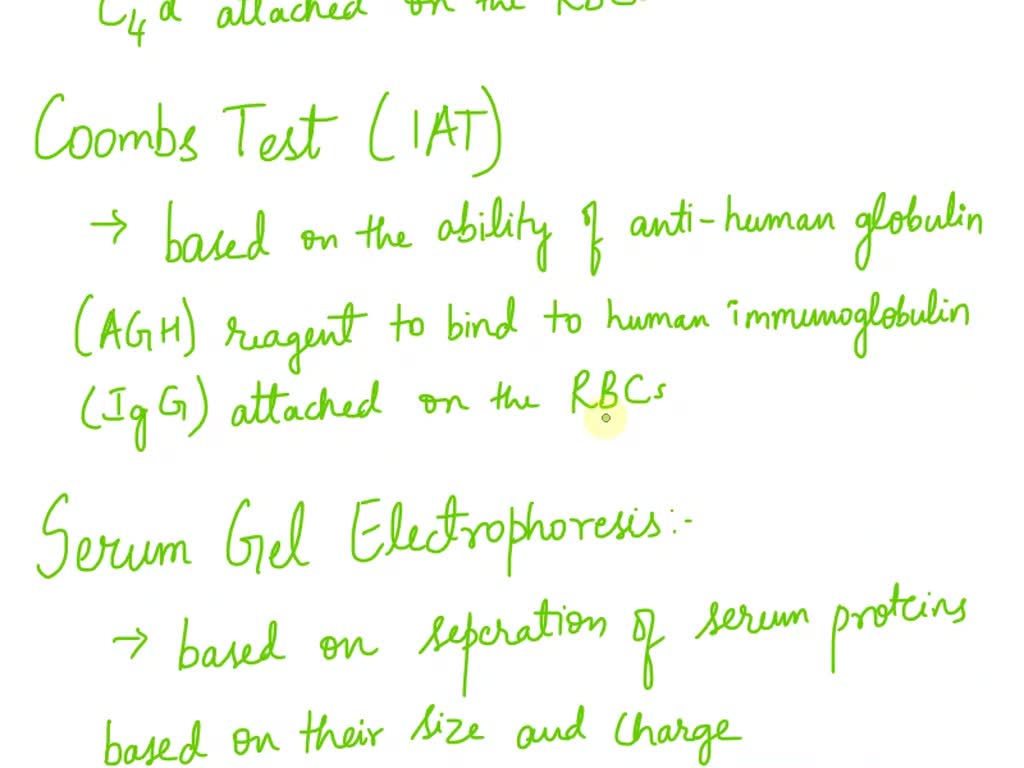 C4d attached on the RBCs
Coombs Test (IAT)
→ based on the ability of anti-human globulin
(AGH) reagent to bind to human immunoglobulin
(IgG) attached on the RBCs
Serum Gel Electrophoresis:-
→ based on sepcration of serum proteins
based on their size and charge